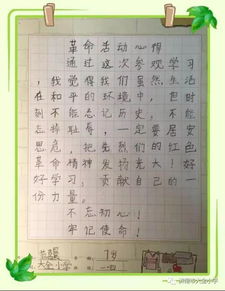 革命活动心得
通过这次参观学习
，我觉得我们虽然生活
在和平的环境中，但时
刻不能忘记历史，不能
忘掉耻辱，一定要居安
思危，把先烈们的红色
革命精神发扬光大！好
好学习，贡献自己的一
份力量。
不忘初心！
牢记使命！
7岁
大全小学